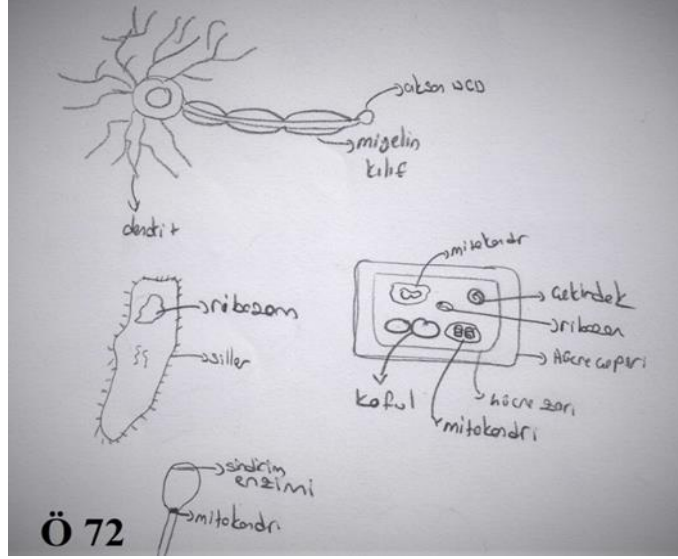 akson ucu
miyelin
kılıf
dendrit
mitokondr
ribozom
siller
Çekirdek
ribozom
Hücre çeperi
hücre zarı
koful
mitokondri
sindirim
enzimi
mitokondri
Ö 72